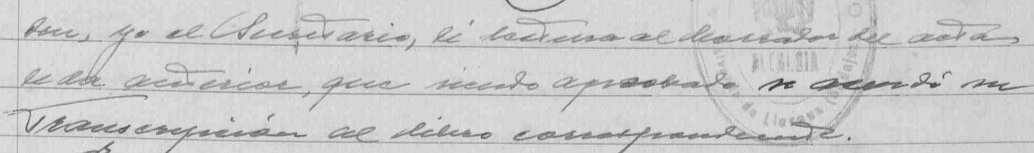 den, yo el Secretario, dí lectura al borrador del acta
de la anterior, que siendo aprobado se acordó su
Transcripción al libro correspondiente.
ALCALDIA